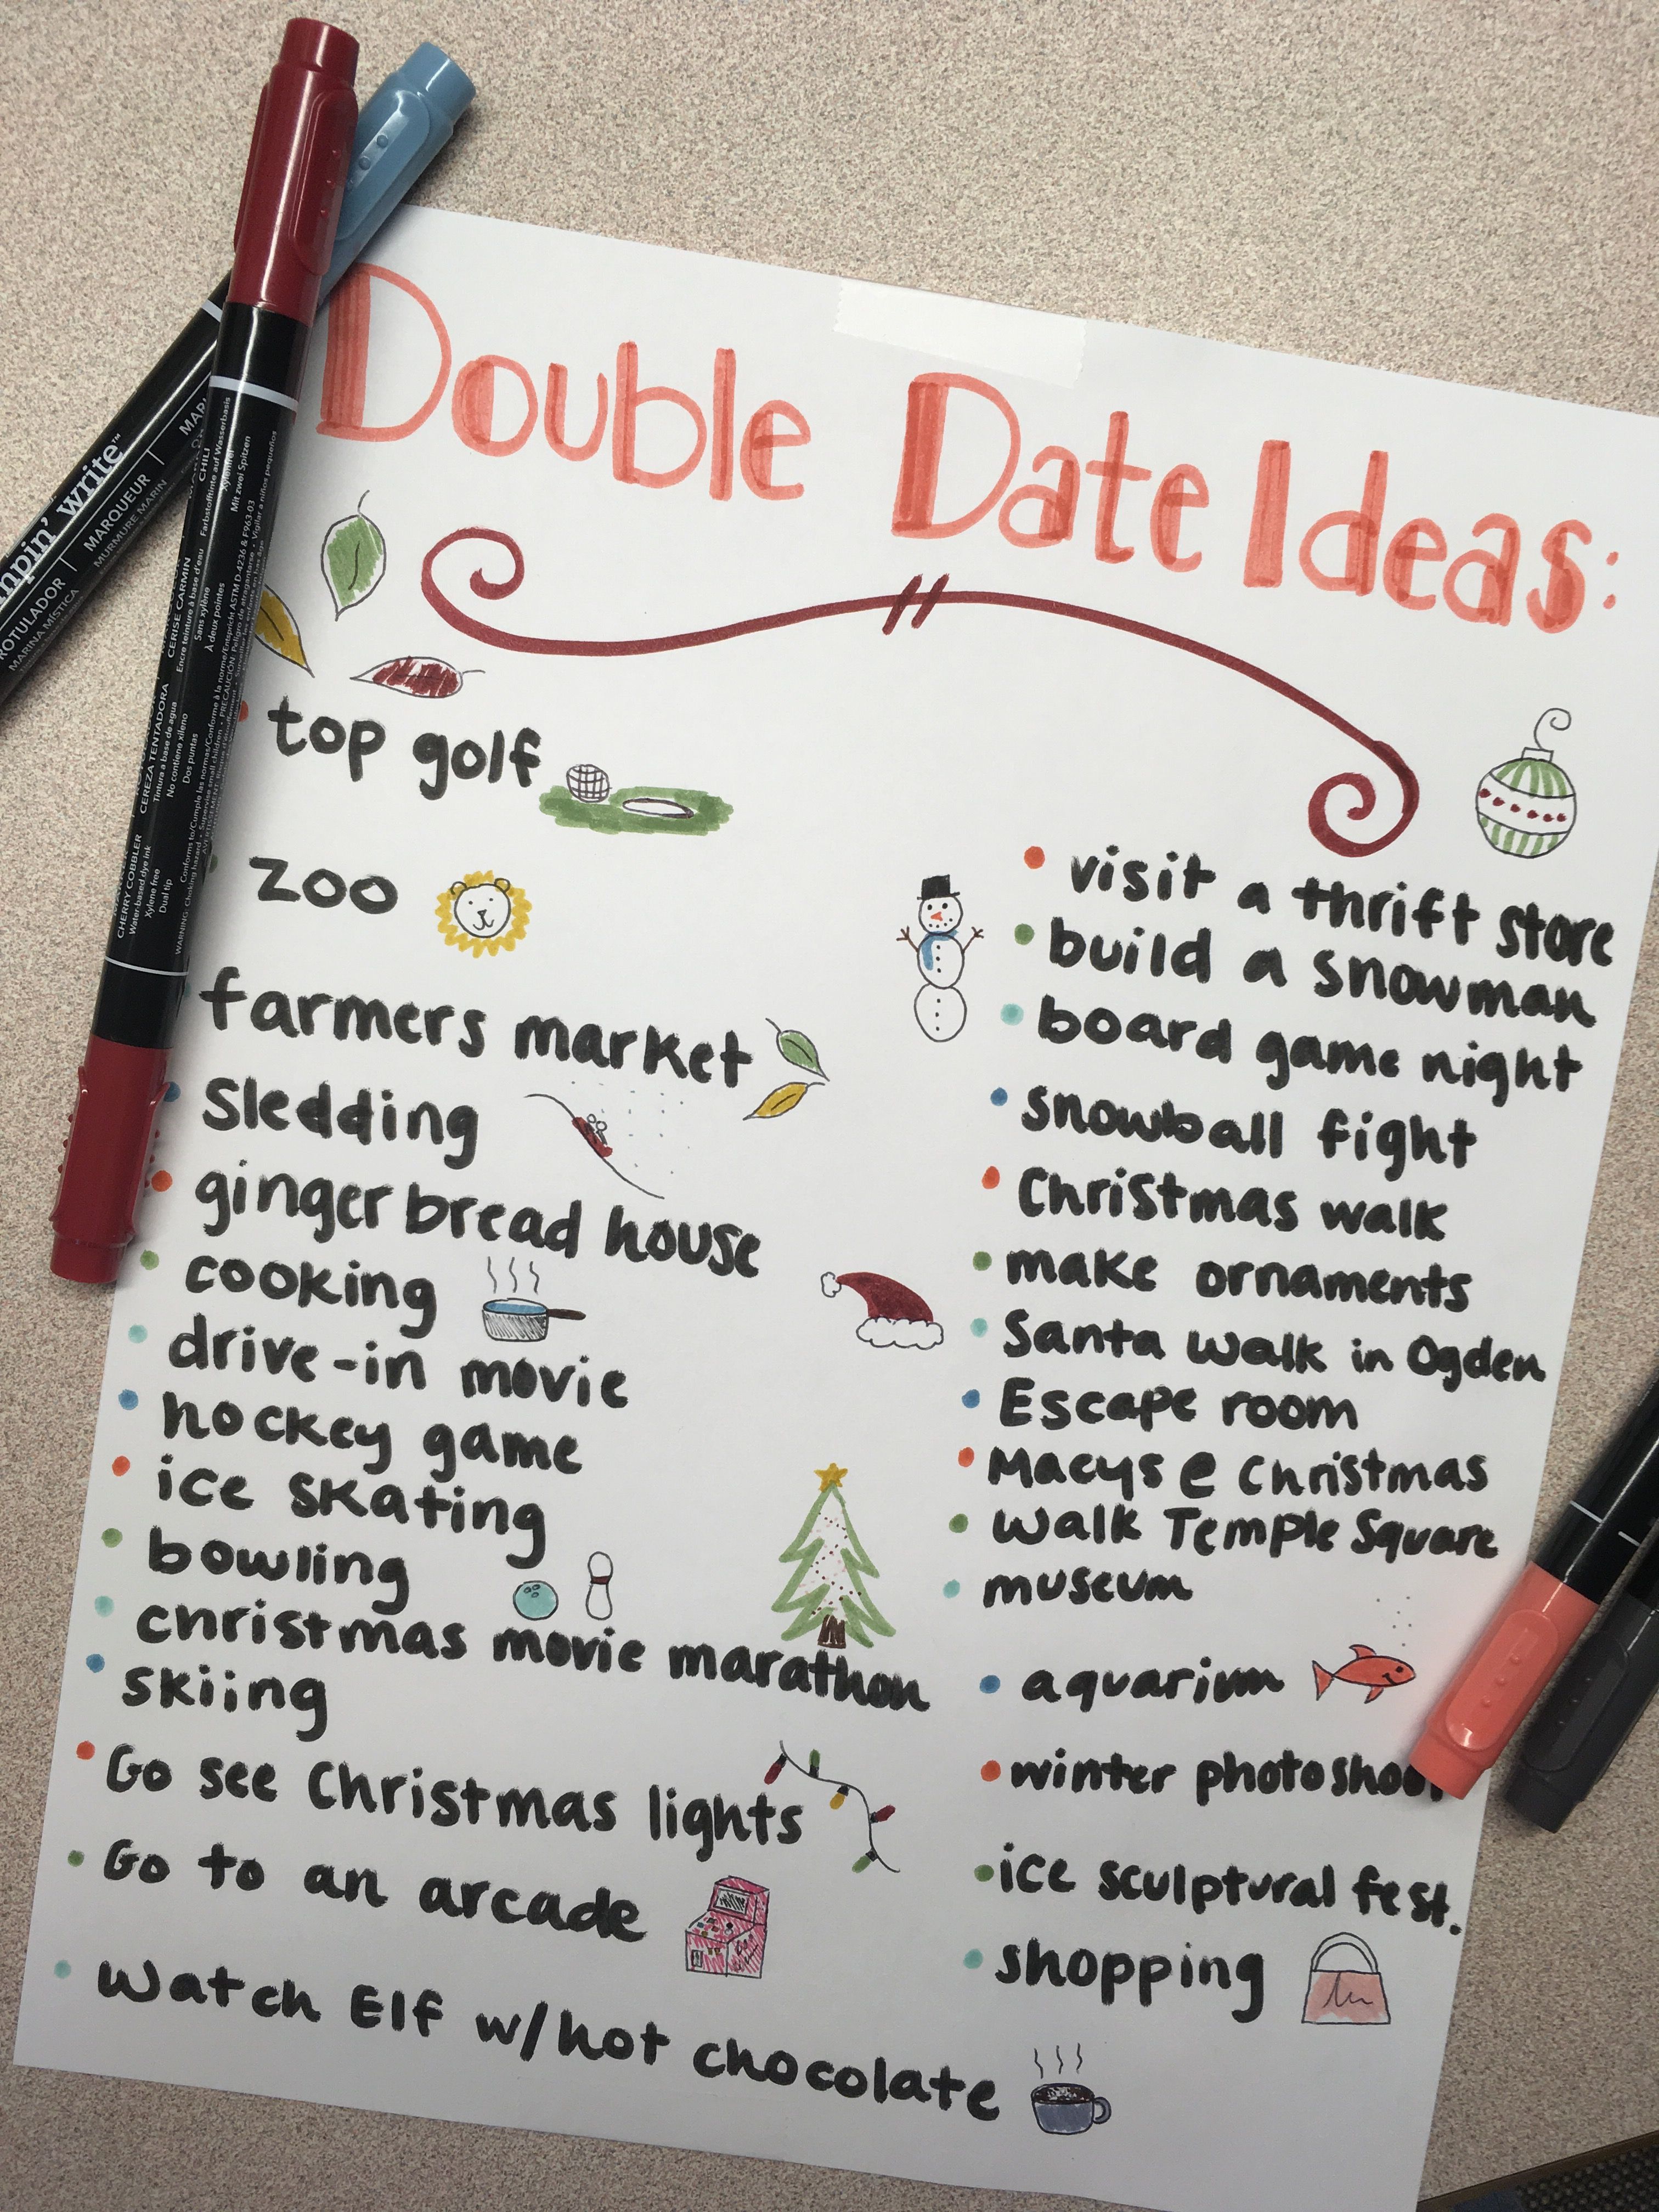 Double Date Ideas:
top golf
zoo
farmers market
sledding
gingerbread house
cooking
drive-in movie
hockey game
ice skating
bowling
christmas movie marathon
skiing
Go see Christmas lights
Go to an arcade
Watch Elf w/hot chocolate
visit a thrift store
build a snowman
board game night
snowball fight
Christmas walk
make ornaments
Santa walk in Ogden
Escape room
Macys @ Christmas
Walk Temple Square
museum
aquarium
winter photoshoot
ice sculptural fest.
shopping
write™
ROTULADOR | MARQUEUR |
MARINA MÍSTICA | MURMURE MARIN
CHERRY COBBLER
Water-based dye ink
Xylene free
Dual tip
CEREZA TENTADORA
Tintura a base de agua
No contiene xileno
Dos puntas
CERISE CARMIN
Encre teinture à base d'eau
Sans xylène
À deux pointes
CHILI
Farbstofftinte auf Wasserbasis
Xylenfrei
Mit zwei Spitzen